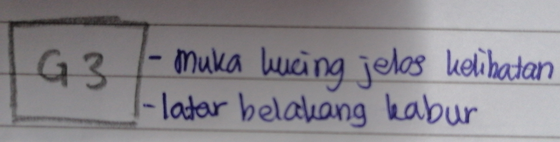 G3
- muka kucing jelas kelihatan
- latar belakang kabur